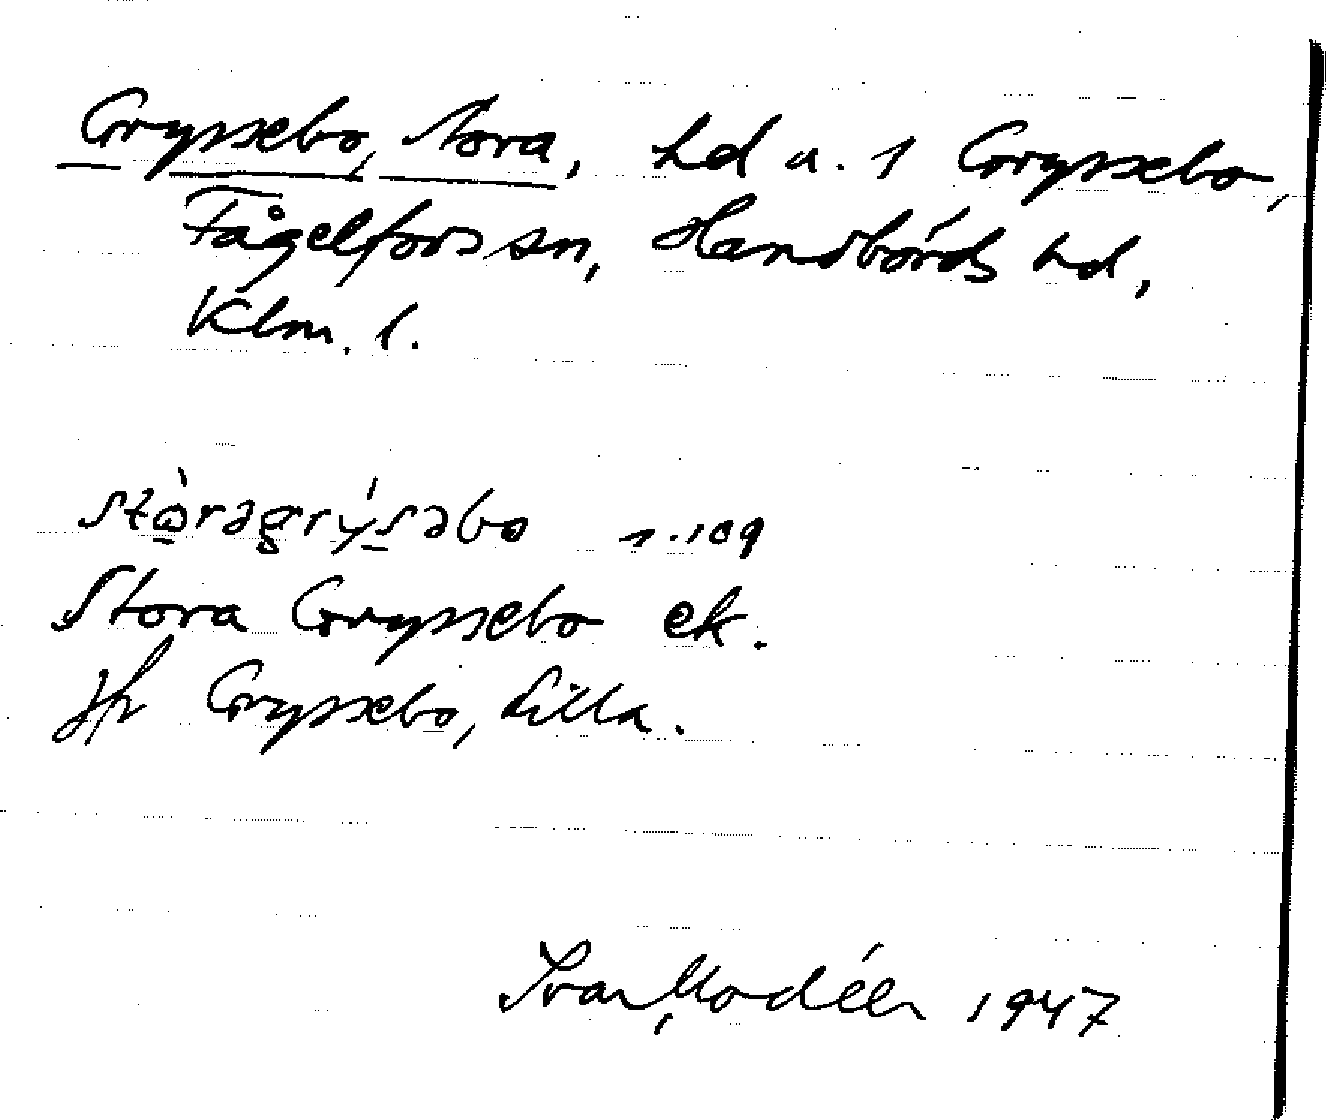 Gryssebo, Stora, hd u. 1 Gryssebo,
Fågelfors sn, Handbörds hd,
Klm. l.
s. 109
Stora Gryssebo ek.
Jfr Gryssebo, Lilla.
Ivar Modéer 1947